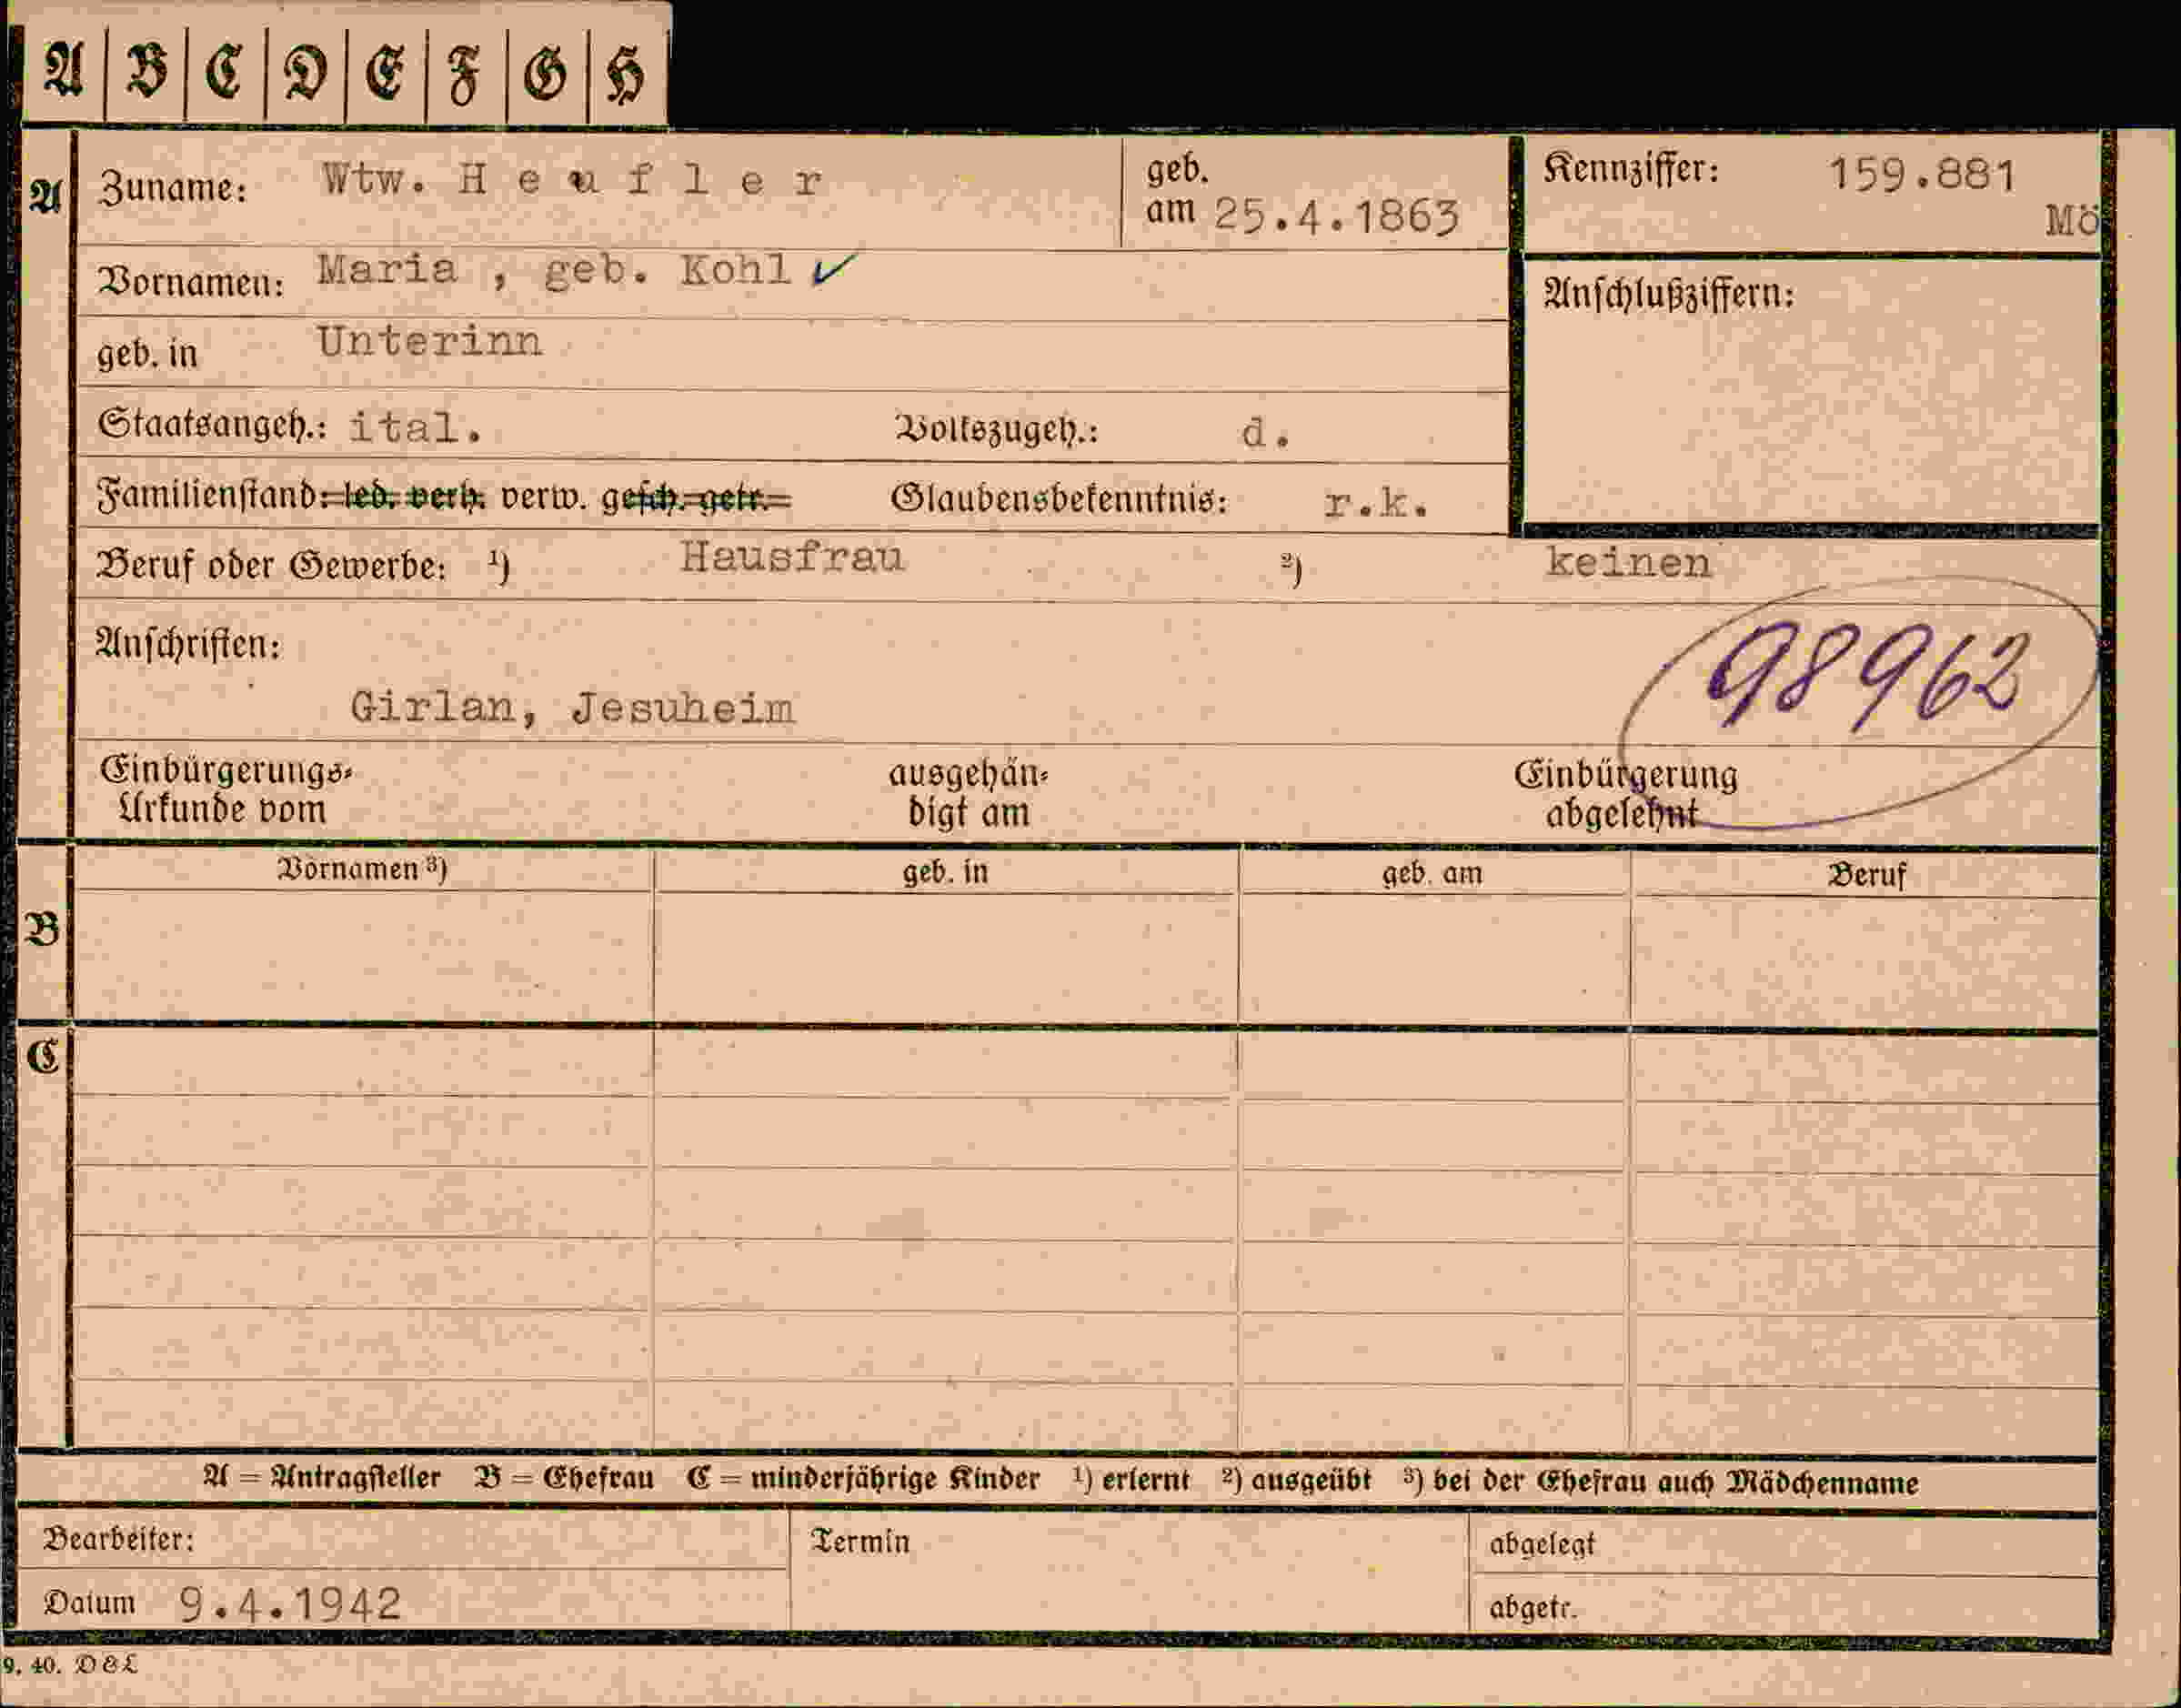 A B C D E F G H
A Zuname: Wtw. H e u f l e r geb. am 25.4.1863 Kennziffer: 159.881
Mö
Vornamen: Maria , geb. Kohl ✓ Anschlußziffern:
geb. in Unterinn
Staatsangeh.: ital. Volkszugeh.: d.
Familienstand: led. verh. verw. gesch. getr. Glaubensbekenntnis: r.k.
Beruf oder Gewerbe: ¹) Hausfrau ²) keinen
Anschriften: 98962
Girlan, Jesuheim
Einbürgerungs= ausgehän= Einbürgerung
Urkunde vom digt am abgelehnt
Vornamen ³) geb. in geb. am Beruf
B
C
A = Antragsteller B = Ehefrau C = minderjährige Kinder ¹) erlernt ²) ausgeübt ³) bei der Ehefrau auch Mädchenname
Bearbeiter: Termin abgelegt
Datum 9.4.1942 abgetr.
9. 40. D&L